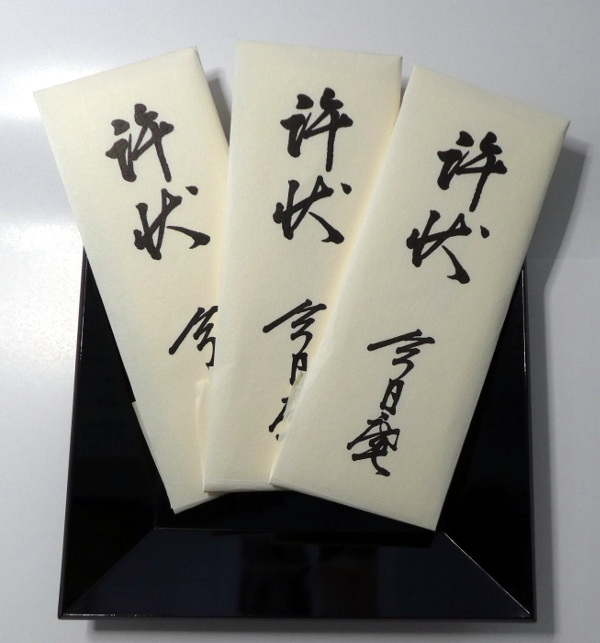 許状
今
許状
今日
許状
今日庵